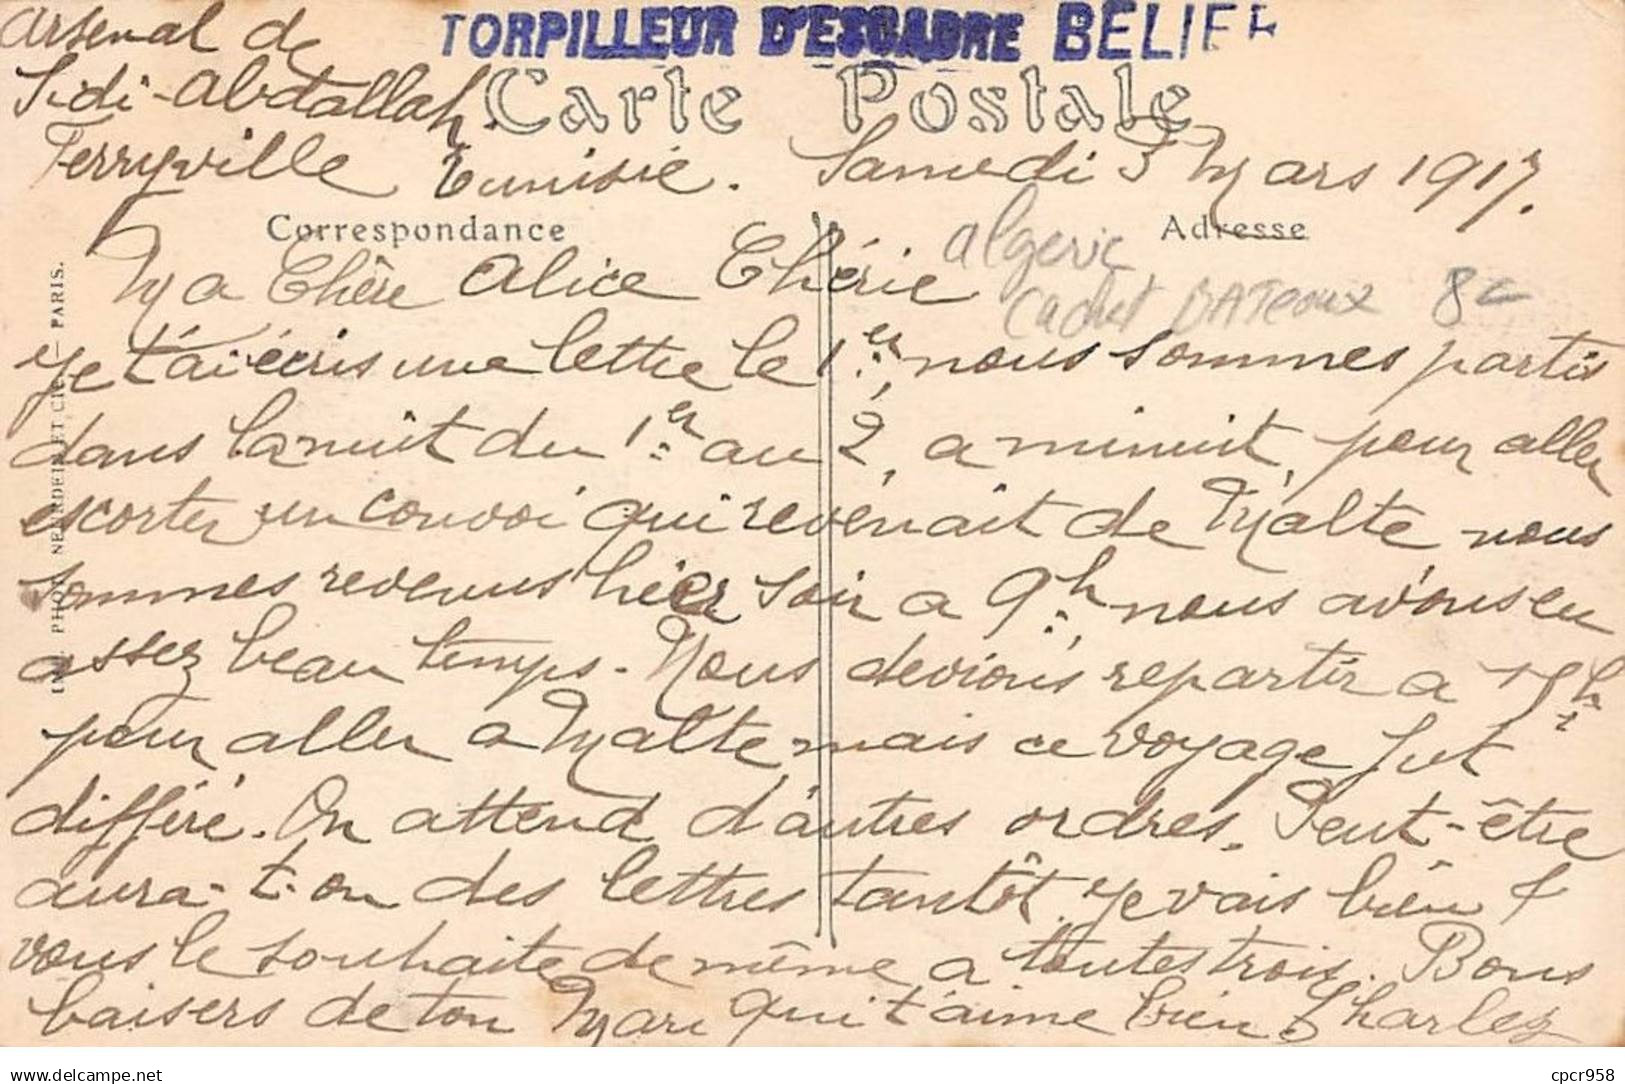 Arsenal de
TORPILLEUR D'ESCADRE BÉLIER
Sidi-Abdallah.
Carte Postale
Ferryville Tunisie. Samedi 3 Mars 1917.
Correspondance
Adresse
Algerie
cachet BATeaux 8c
Ma Chère Alice Chérie
Je t'ai écris une lettre le 1er, nous sommes partis
dans la nuit du 1er au 2, a minuit, pour aller
escorter un convoi qui revenait de Malte nous
sommes revenus hier soir a 9h, nous avons eu
assez beau temps. Nous devions repartir a
pour aller a Malte, mais ce voyage fut
différé. On attend d'autres ordres. Peut-être
aura-t-on des lettres tantôt. Je vais bien &
vous le souhaite de même a toutes trois. Bons
baisers de ton Mari qui t'aime bien Charles
IMP. PHOT. NEURDEIN ET CIE. — PARIS.
cpcr958